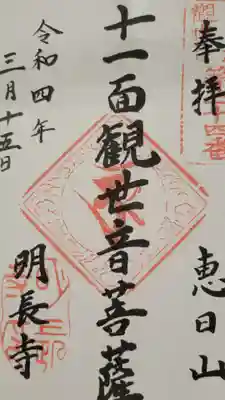 奉拝
十一面観世音菩薩
恵日山
明長寺
令和四年
三月十五日